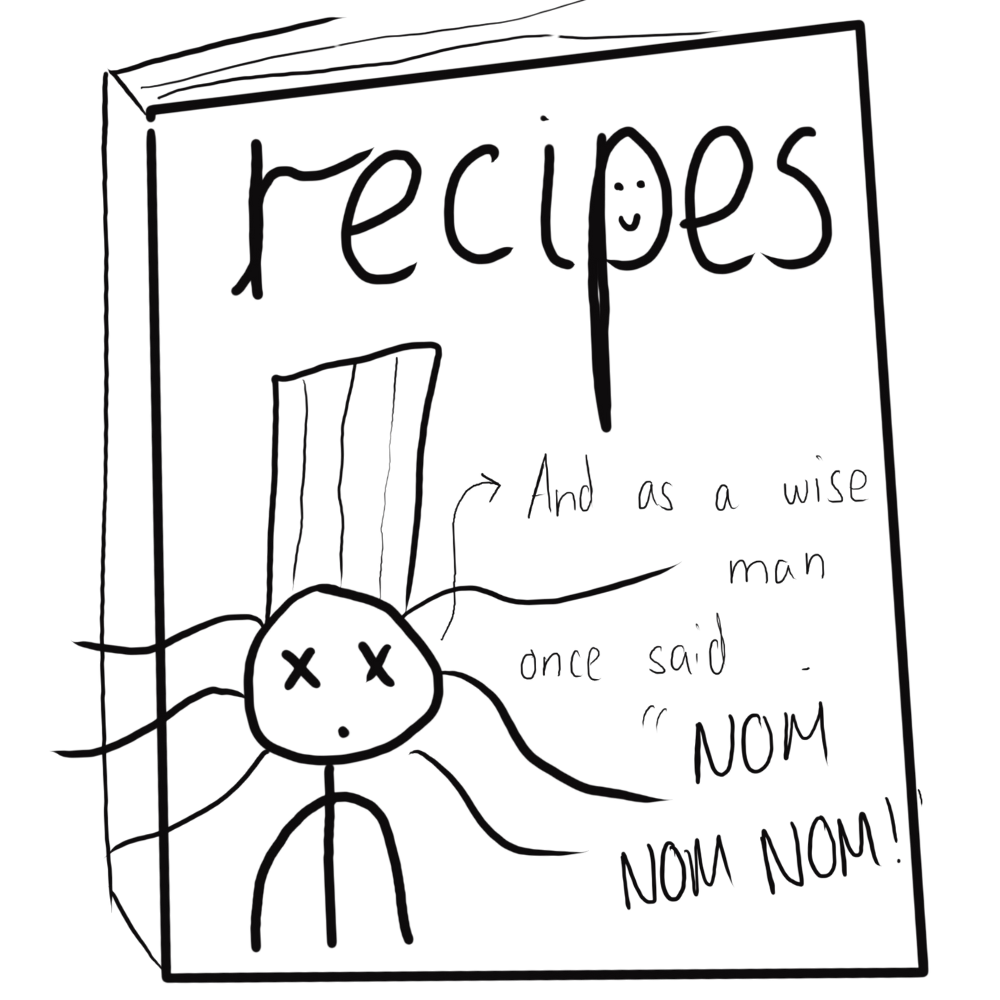 recipes
And as a wise
man
once said
"NOM
NOM NOM!"